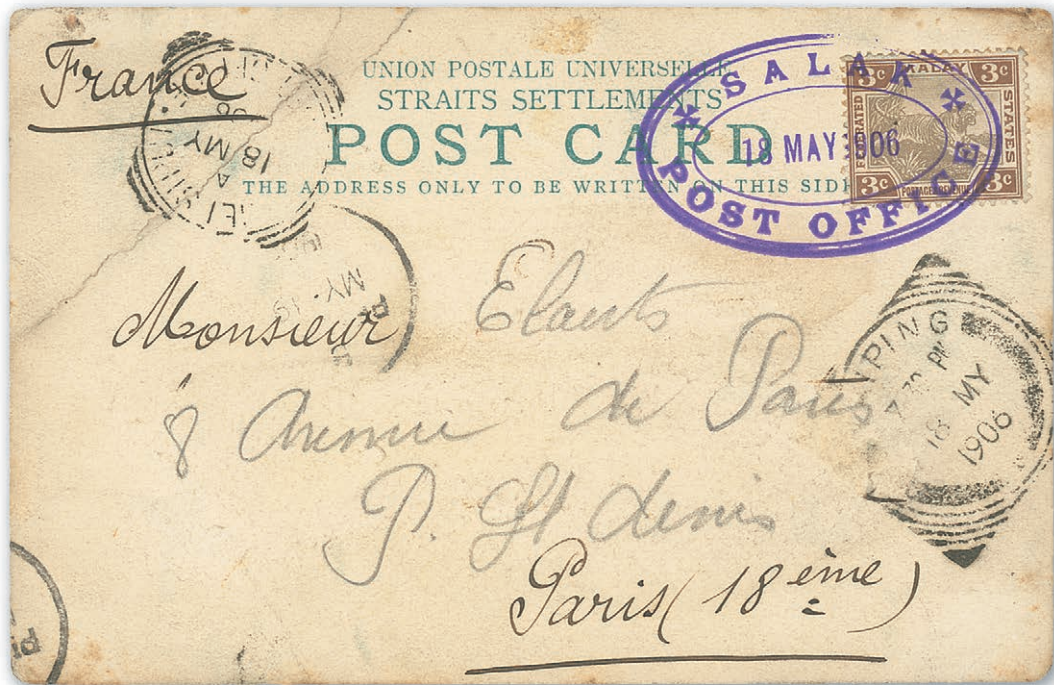 France
UNION POSTALE UNIVERSELLE
STRAITS SETTLEMENTS
POST CARD
THE ADDRESS ONLY TO BE WRITTEN ON THIS SIDE
SALAK
18 MAY 1906
POST OFFICE
3c MALAY 3c
FEDERATED
STATES
3c POSTAGE & REVENUE 3c
A
18 MY
06
MY 19
PING
PM
18 MY
1906
Monsieur
8 Avenue de Paris
P. St denis
Paris (18ème)